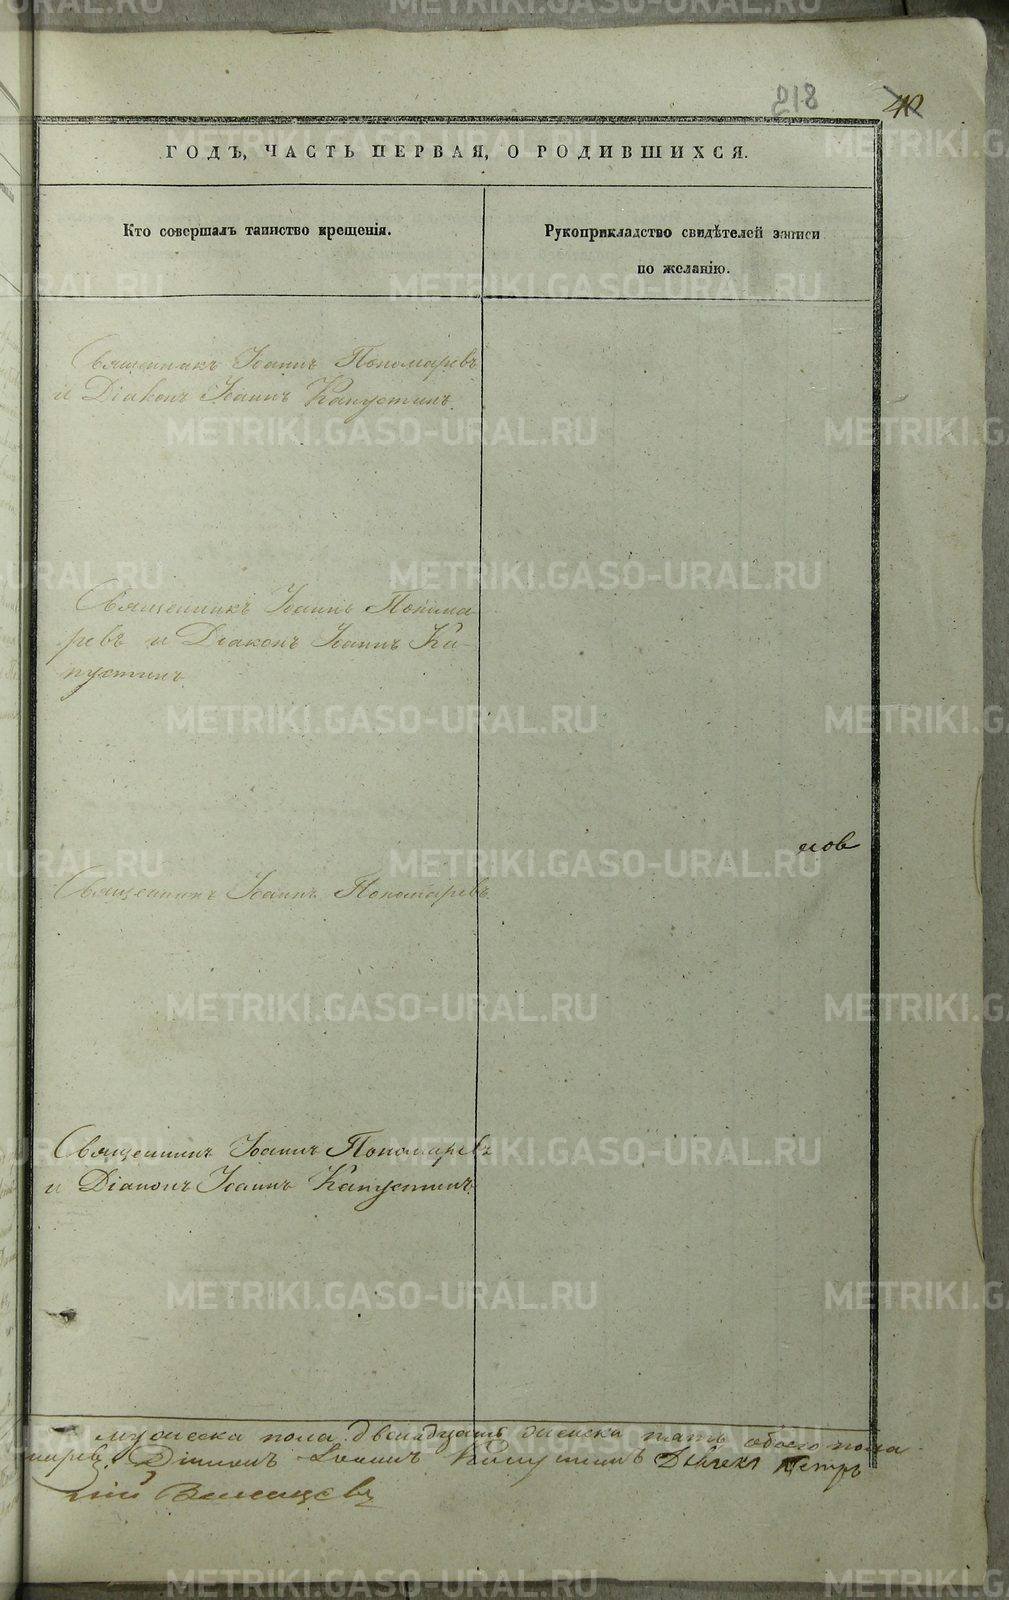 218
40
ГОДЪ, ЧАСТЬ ПЕРВАЯ, О РОДИВШИХСЯ.
Кто совершалъ таинство крещенія.
Рукоприкладство свидѣтелей записи
по желанію.
Священникъ Іоаннъ Пономаревъ
и Діаконъ Іоаннъ Капустинъ.
Священникъ Іоаннъ Понома-
ревъ и Діаконъ Іоаннъ Ка-
пустинъ.
нов
Священникъ Іоаннъ Пономаревъ
Священникъ Іоаннъ Пономаревъ
и Діаконъ Іоаннъ Капустинъ.
мужеска пола двенадцать женска пять обоего пола
марев, Діаконъ Іоаннъ Капустинъ Дьячекъ Петръ
METRIKI.GASO-URAL.RU